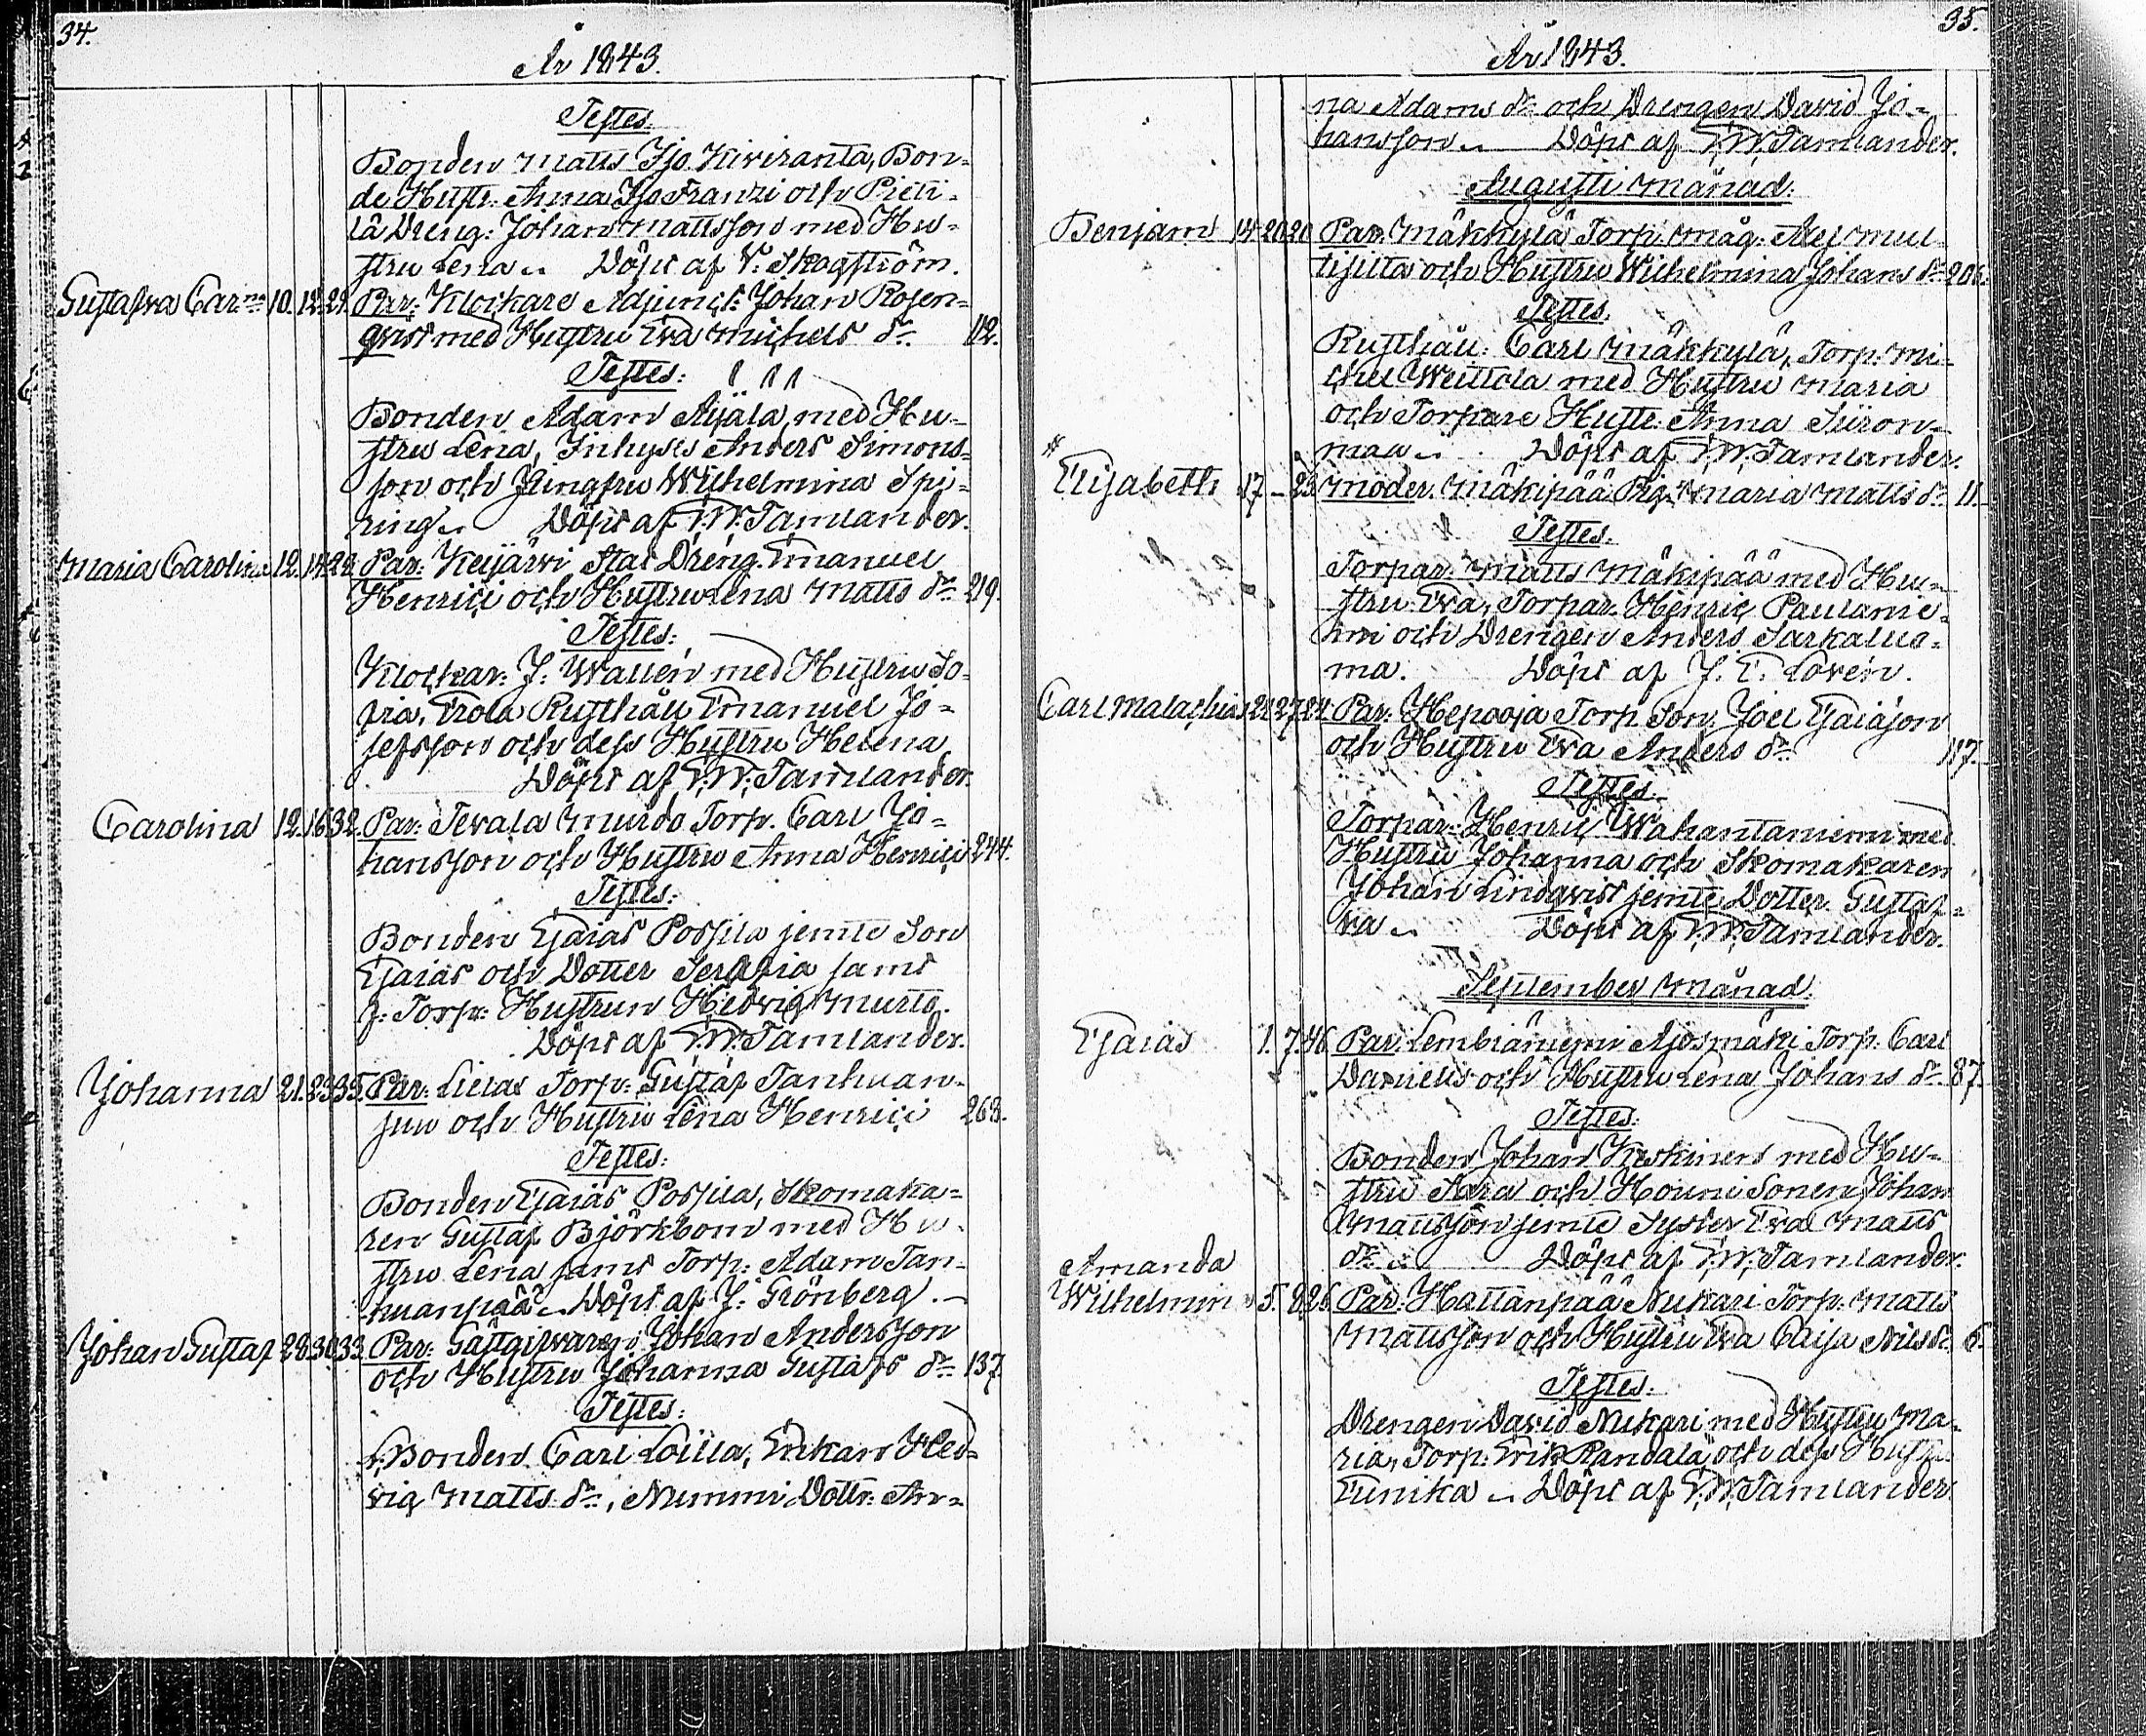 34.
År 1843.
Testes.
Bonden Matts Iso Kiviranta, Bon-
de Hustr: Anna Iso Franzi och Pieti-
lä Dreng: Johan Mattsson med Hu-
stru Lena. Döpt af V. Skogström.
Gustafva Car:na 10. 12. 29. Par: Klockare Adjunct: Johan Rosen-
qvist med Hustru Eva Michels dr. 112.
Testes:
Bonden Adam Äijälä med Hu-
stru Lena, Inhyses Anders Simons-
son och Jungfru Wilhelmina Spi-
ring. Döpt af F. W. Tamlander.
Maria Carolina 12. 14. 22. Par: Keijärvi Stat Dreng. Emanuel
Henrici och Hustru Lena Matts dr. 219.
Testes:
Klockar: J: Wallén med Hustru So-
fia, Erola Rusthåll: Emanuel Jo-
sefsson och dess Hustru Helena
Döpt af F. W. Tamlander.
Carolina 12. 16. 32. Par: Tevala Murdo Torp. Carl Jo-
hansson och Hustru Anna Henrici 244.
Testes:
Bonden Esaias Possila jemte Son
Esaias och Dotter Serafia samt
f: Torp: Hustrun Hedvig Murto.
Döpt af F. W. Tamlander.
Johanna 21. 23. 35. Par: Torp: Gustaf Tanhuan-
suu och Hustru Lena Henrici 263.
Testes:
Bonden Esaias Possila, Skomaka-
ren Gustaf Björkbom med Hu-
stru Lena samt Torp: Adam Tan-
huanpää. Döpt af J: Grönberg.
Johan Gustaf 28. 30. 33. Par: Gästgifvaren Johan Andersson
och Hustru Johanna Gustafs dr. 137.
Testes:
Bonden Carl Loilla, Enkan Hed-
vig Matts dr., Nummi Dottr: An-
35.
År 1843.
na Adams dr och Drengen David Jo-
hansson. Döpt af F. W. Tamlander.
Augusti Månad.
Benjam 14. 20. 20. Par: Mäkkylä Torp: Måg: Mul-
tisilta och Hustru Wilhelmina Johans dr 206.
Testes.
Rusthåll: Carl Mäkkylä, Torp: Mi-
chel Weittola med Hustru Maria
och Torpare Hustr: Anna Siiron-
maa. Döpt af F. W. Tamlander.
Elisabeth 17. – 23. Moder. Mäkipää Pig. Maria Matts dr. 11.
Testes.
Torpar: Matts Mäkipää med Hu-
stru Eva, Torpar. Henric Paulanie-
mi och Drengen Anders Sarkaluo-
ma. Döpt af J. E. Lovén.
Carl Malachias 21. 27. 24. Par: Hepooja Torp. Son. Joel Esaiason
och Hustru Eva Anders dr. 117.
Testes.
Torpar: Henric Wahantaniemi med
Hustru Johanna och Skomakaren
Johan Lindqvist jemte Dotter Gustaf-
va. Döpt af F. W. Tamlander.
September Månad.
Esaias 1. 7. 46. Par: Lembiäniemi Ajosmäki Torp: Carl
Danielis och Hustru Lena Johans dr. 87.
Testes.
Bonden Johan Keskinen med Hu-
stru Sara och Houni Sonen Johan
Mattsson jemte Syster Eva Matts
dr. Döpt af F. W. Tamlander.
Amanda
Wilhelmin 5. 8. 26. Par: Hattanpää Nukari Torp: Matts
Mattsson och Hustru Eva Caisa Nils dr. 6.
Testes.
Drengen David Nukari med Hustru Ma-
ria, Torp: Erik Randala och dess Hustru
Eunika. Döpt af F. W. Tamlander.